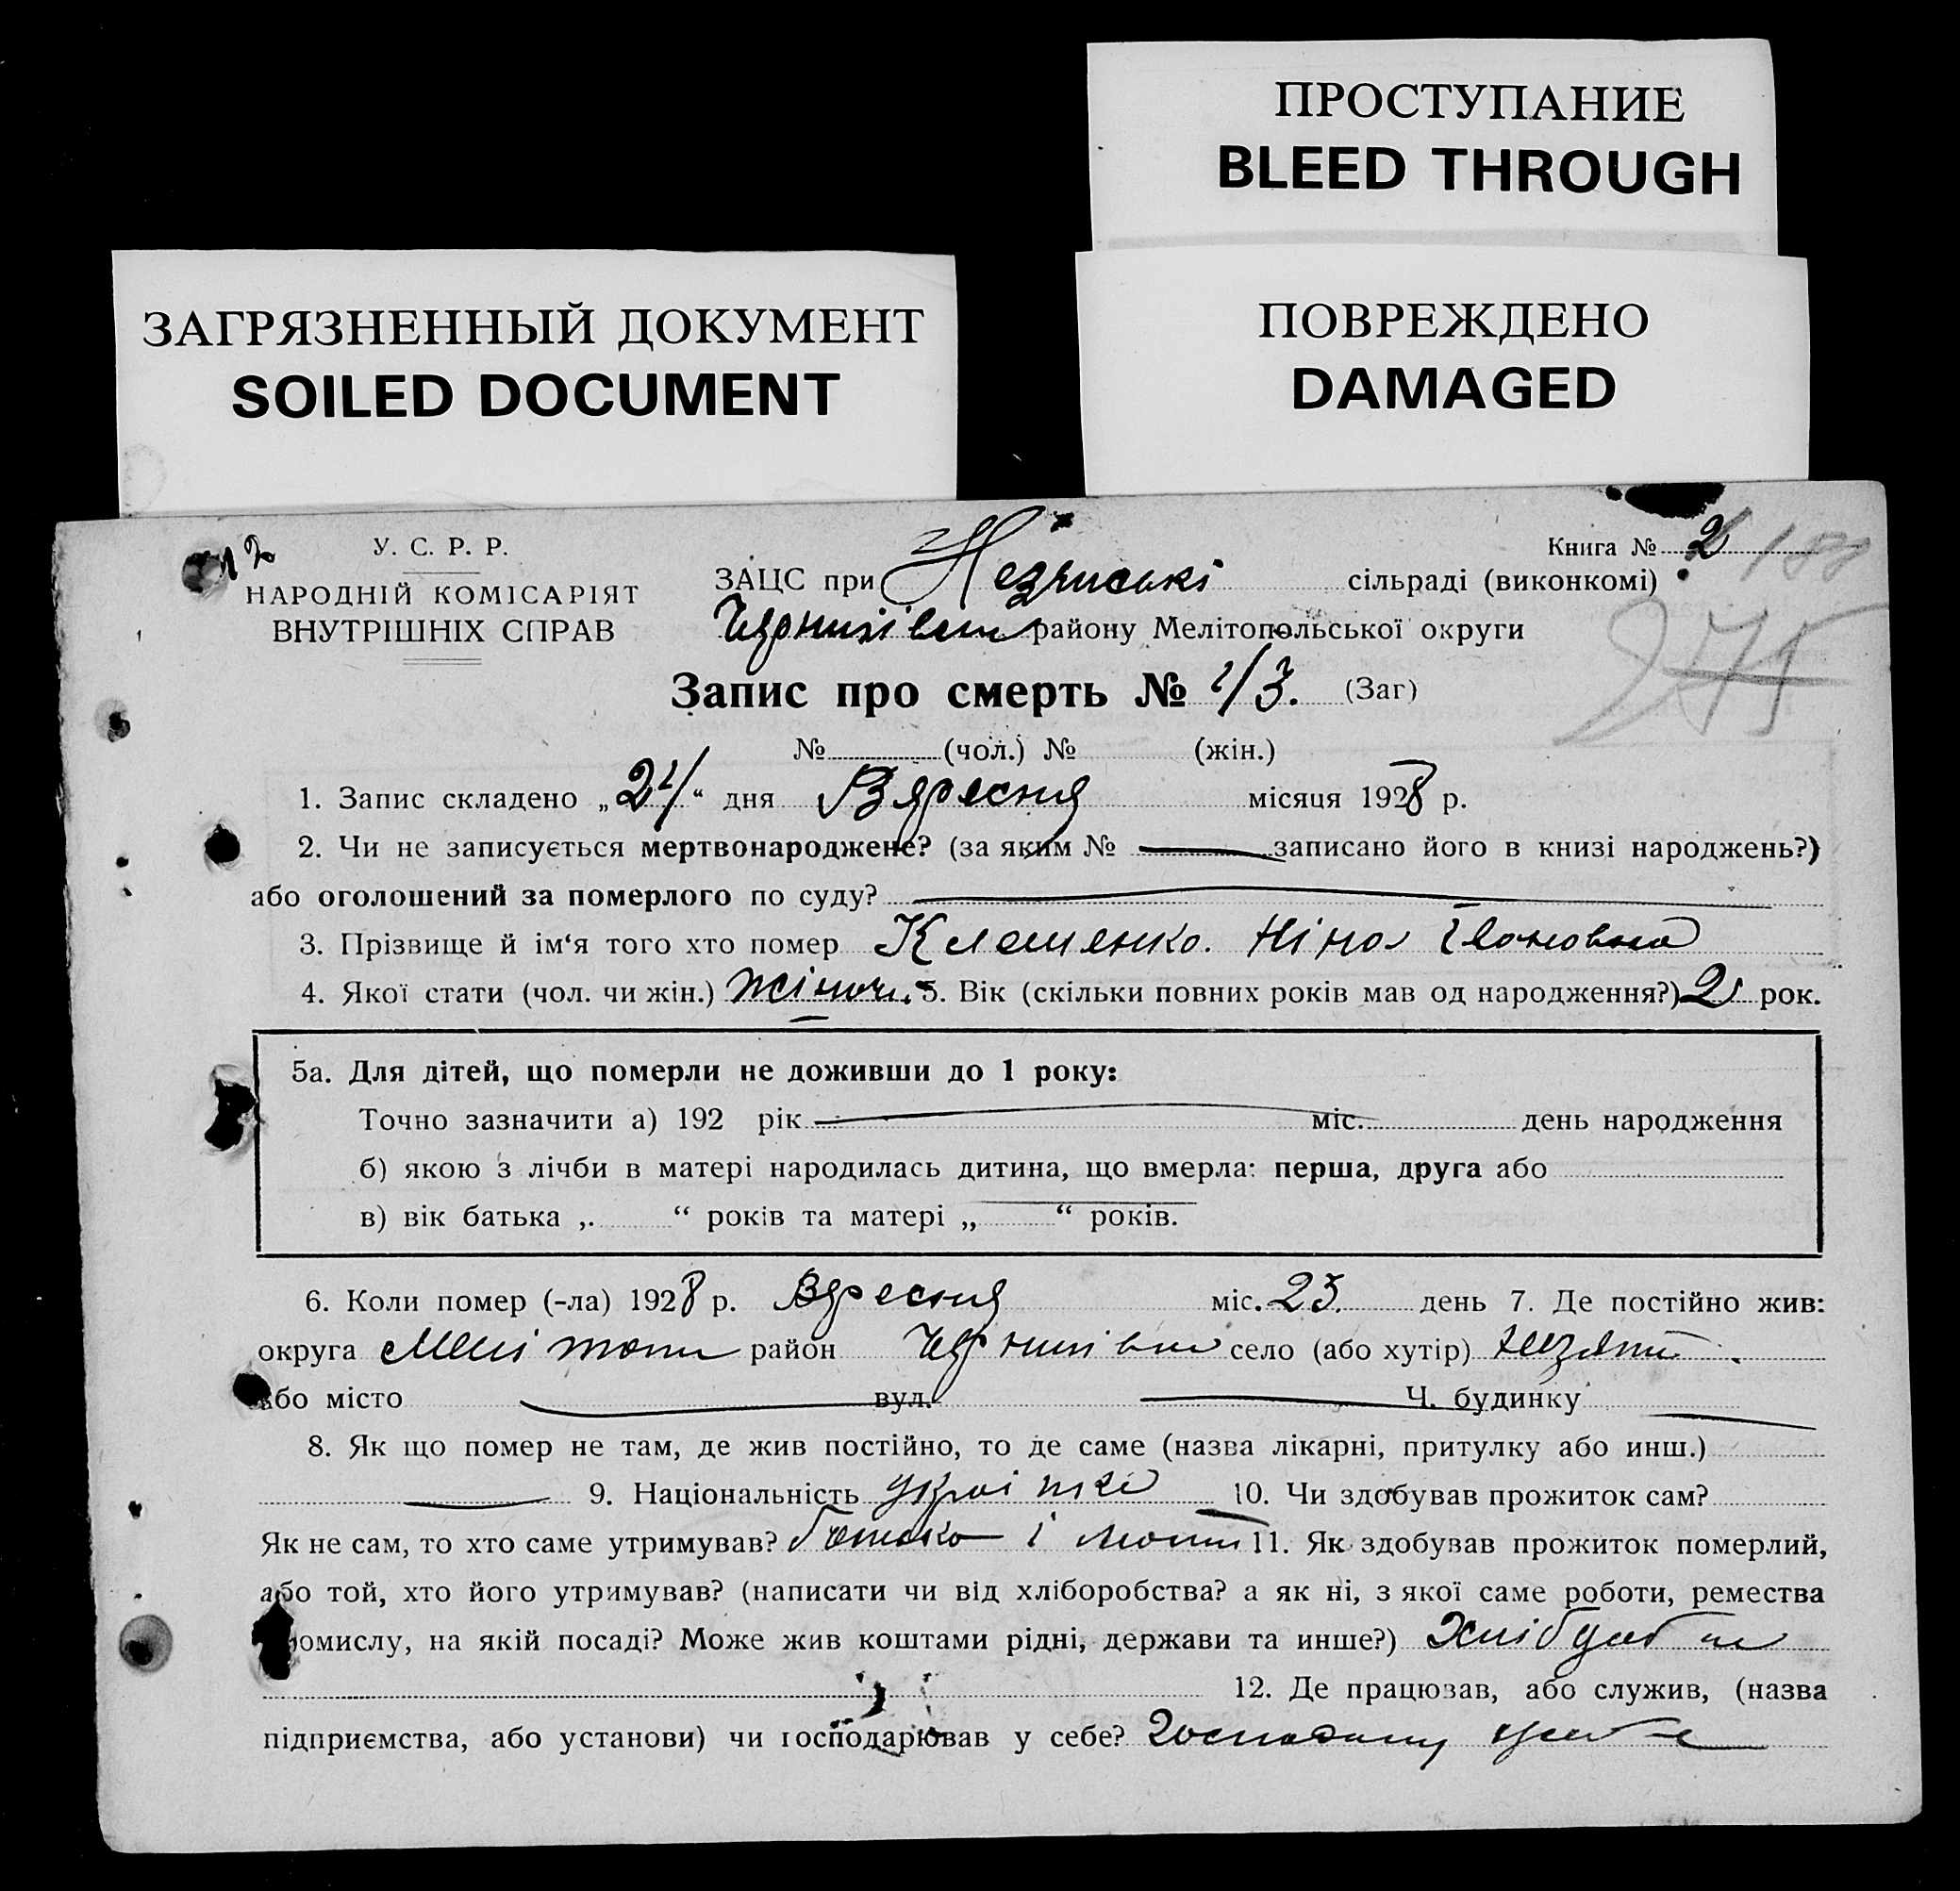 ПРОСТУПАНИЕ
BLEED THROUGH
ЗАГРЯЗНЕННЫЙ ДОКУМЕНТ
SOILED DOCUMENT
ПОВРЕЖДЕНО
DAMAGED
У. С. Р. Р.
НАРОДНІЙ КОМІСАРІЯТ
ВНУТРІШНІХ СПРАВ
Книга № 2
188
275
ЗАЦС при сільраді (виконкомі)
Чернигівськ району Мелітопольської округи
Запис про смерть № (Заг)
№ (чол.) № (жін.)
1. Запис складено „24“ дня Вересня місяця 1928 р.
2. Чи не записується мертвонароджене? (за яким № записано його в книзі народжень?)
або оголошений за померлого по суду?
3. Прізвище й ім‘я того хто помер Клеменко Ніна Івановна
4. Якої стати (чол. чи жін.) жіноч. 5. Вік (скільки повних років мав од народження?) рок.
5а. Для дітей, що померли не доживши до 1 року:
Точно зазначити а) 192 рік міс. день народження
б) якою з лічби в матері народилась дитина, що вмерла: перша, друга або
в) вік батька „ “ років та матері „ “ років.
6. Коли помер (-ла) 1928 р. Вересня міс. 23. день 7. Де постійно жив:
округа Меліт район Чернигів село (або хутір)
або місто вул. Ч. будинку
8. Як що помер не там, де жив постійно, то де саме (назва лікарні, притулку або инш.)
9. Національність 10. Чи здобував прожиток сам?
Як не сам, то хто саме утримував? батько і мати 11. Як здобував прожиток померлий,
або той, хто його утримував? (написати чи від хліборобства? а як ні, з якої саме роботи, ремества
промислу, на якій посаді? Може жив коштами рідні, держави та инше?)
12. Де працював, або служив, (назва
підприємства, або установи) чи господарював у себе?